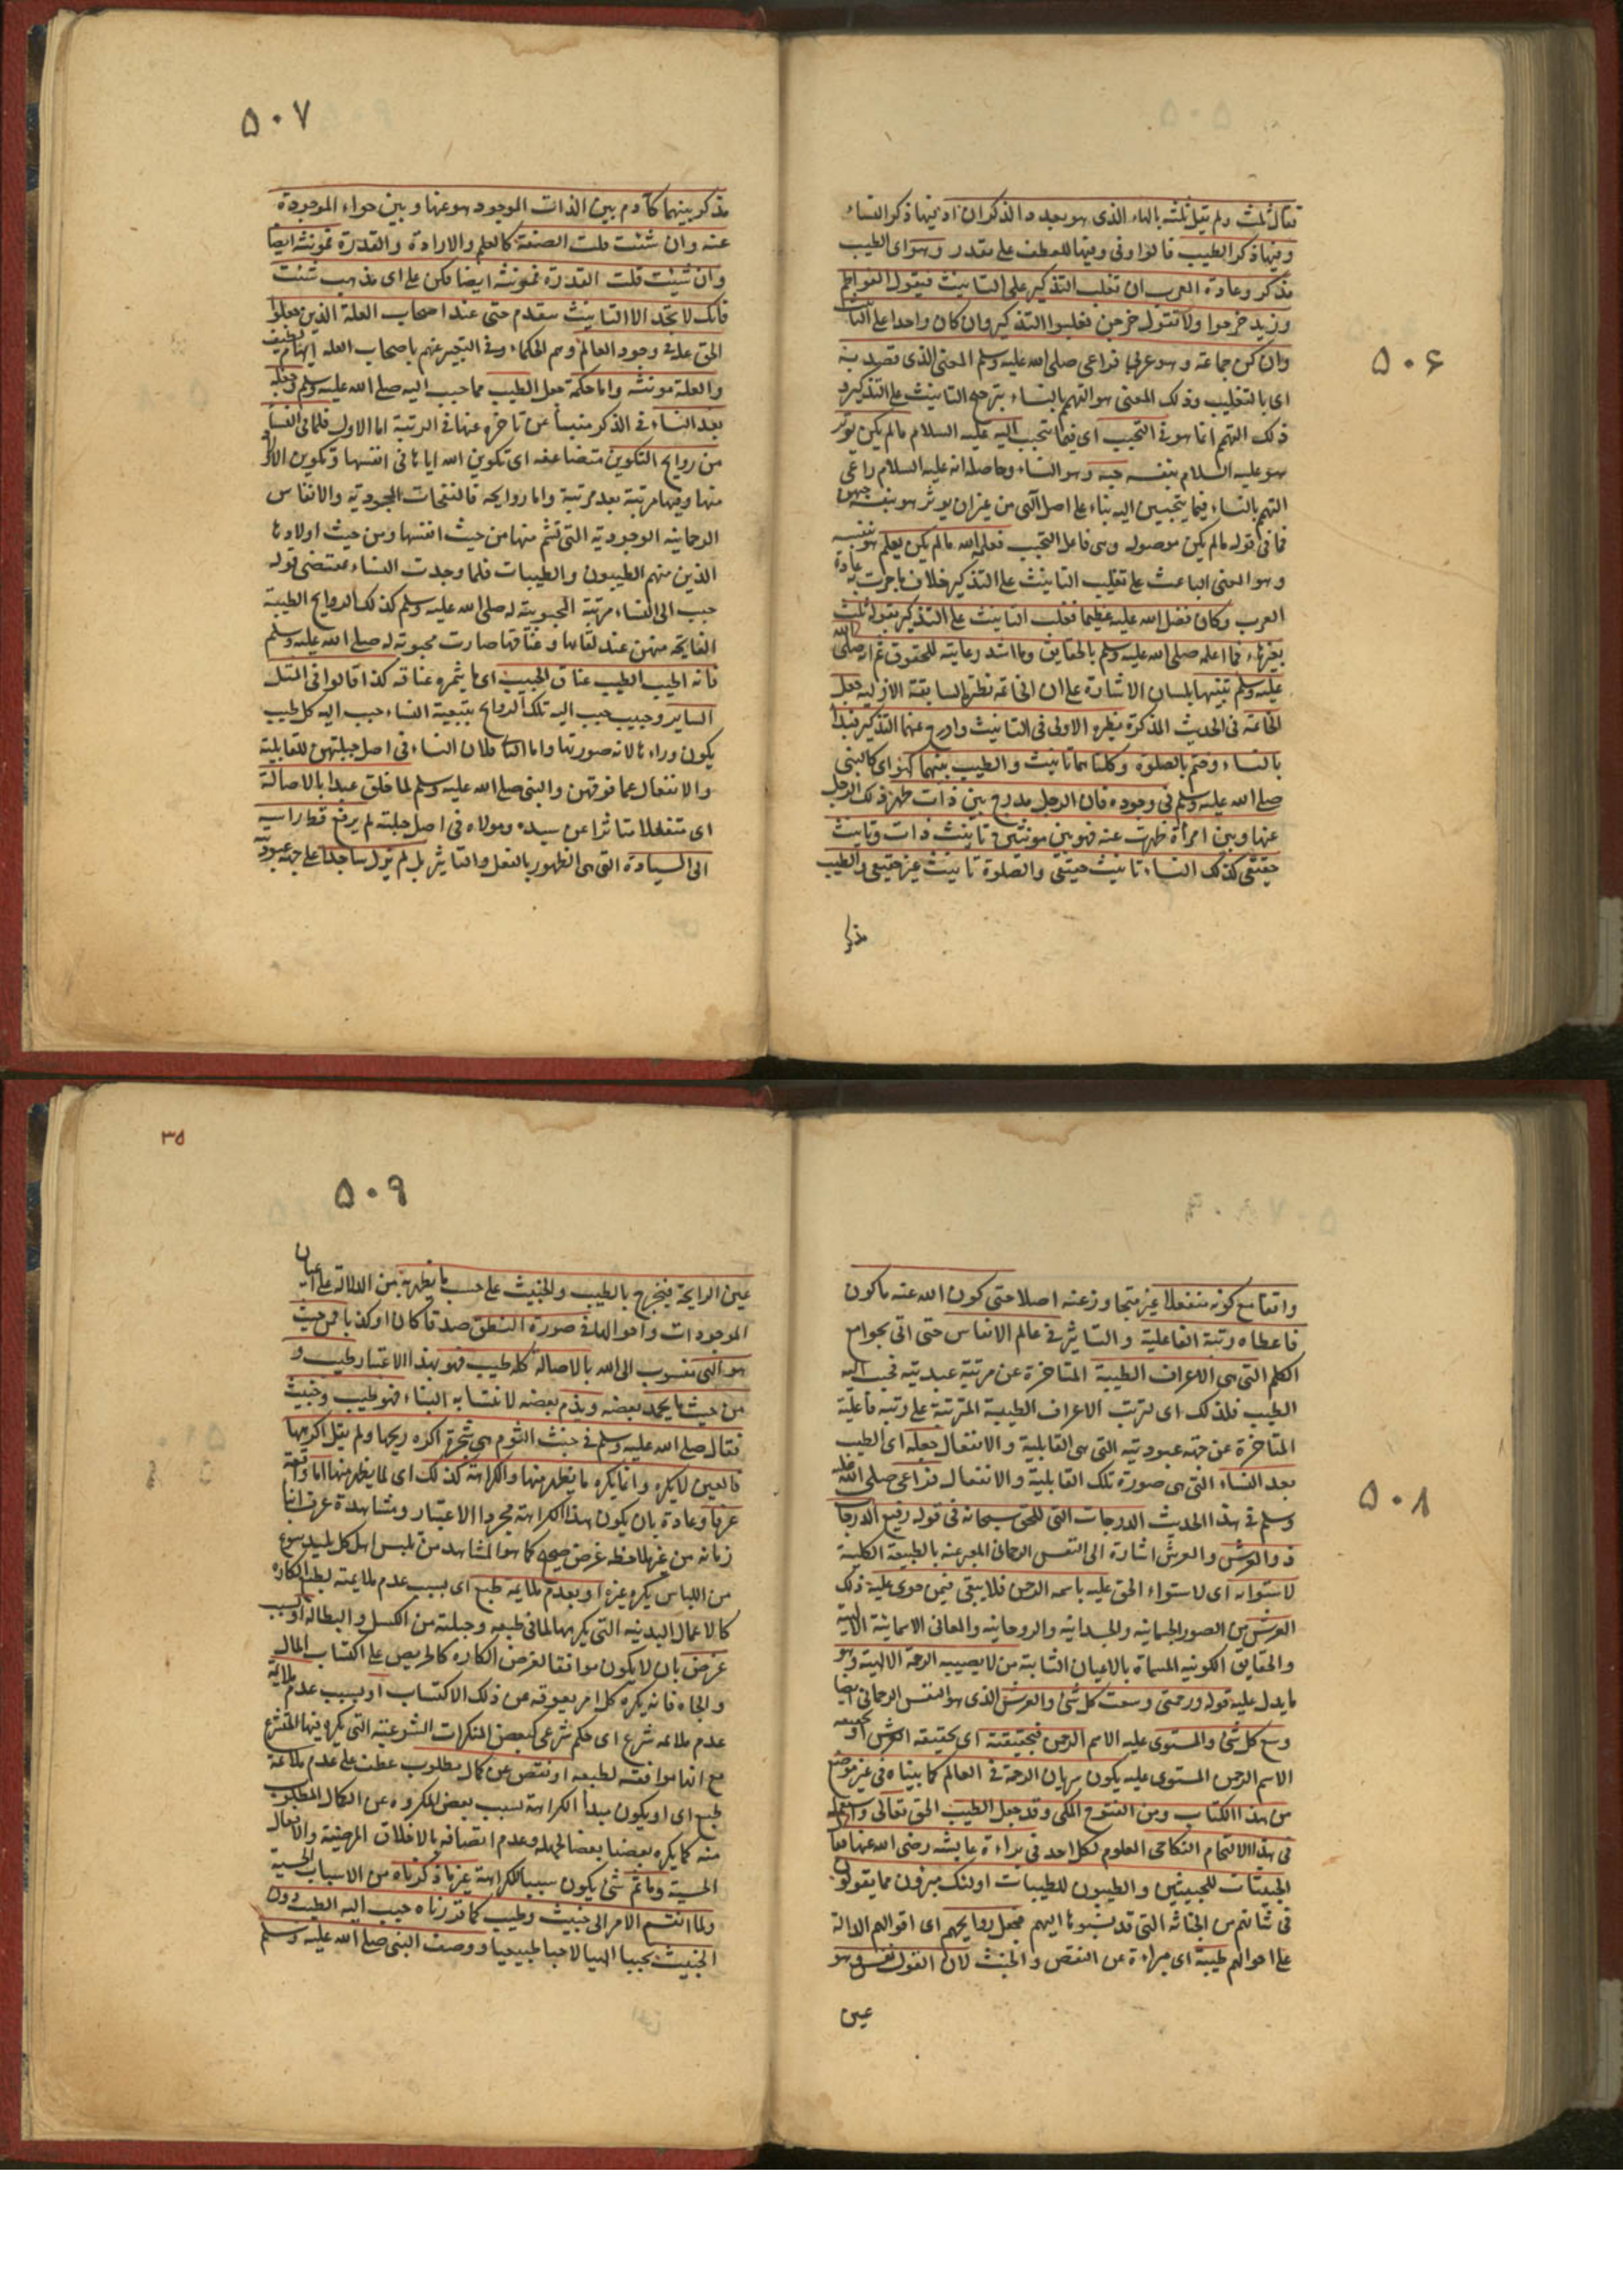 ٥٠٦
فقال ثلث ولم يقل ثلثه بالهاء الذى هو بعدد الذكران اذ فيها ذكر النساء
وفيها ذكر الطيب قالوا وفى وفيها للعطف على مقدر وهو اى الطيب
مذكر وعادة العرب ان تغلب التذكير على التانيث فيقول الفواطم
وزيد خرجوا ولا تقول خرجن فغلبوا التذكير وان كان واحدا على التانيث
وان كن جماعة وهو عربى فراعى صلى الله عليه وسلم المعنى الذى قصد به
اى بالتغليب وذلك المعنى هو التهم بالنساء بترجيح التانيث على التذكير و
ذلك التهم انما هو فى التحبب اى فيما تحبب اليه عليه السلام ما لم يكن يؤثر
هو عليه السلام بنفسه حبه وهو النساء وحاصله انه عليه السلام راعى
التهم بالنساء فيما يتحببن اليه بناء على اصل آلهى من غير ان يؤثر هو بنفسه حبهن
فما فى قوله ما لم يكن موصوله وهى فاعل التحبب فعلمه الله ما لم يكن يعلم هو بنفسه
وهو المعنى الباعث على تغليب التانيث على التذكير خلاف ما جرت به عادة
العرب وكان فضل الله عليه عظيما فغلب التانيث على التذكير بقوله ثلث
بغير هاء فما اعلمه صلى الله عليه وسلم بالحقايق وما اشد رعايته للحقوق ثم انه صلى الله
عليه وسلم تنبيها بلسان الاشارة على ان الخاتمة نظيرة السابقة الازليه جعل
الخاتمة فى الحديث المذكورة نظيره الاولى فى التانيث وادرج بينهما التذكير فبدأ
بالنساء وختم بالصلوة وكلتاهما تانيث والطيب بينهما كهو اى كالنبى
صلى الله عليه وسلم فى وجوده فان الرجل مدرج بين ذات ظهر ذلك الرجل
عنها وبين امرأة ظهرت عنه فهو بين مونثين تانيث ذات وتانيث
حقيقى كذلك النساء تانيث حقيقى والصلوة تانيث غير حقيقى والطيب
مذكر
٥٠٧
مذكر بينهما كآدم بين الذات الموجود هو عنها وبين حواء الموجودة
عنه وان شئت قلت الصفة كالعلم والارادة والقدرة فمونثة ايضا
وان شئت قلت القدرة فمونثة ايضا فكن على اى مذهب شئت
فانك لا تجد الا التانيث يتقدم حتى عند اصحاب العلة الذين جعلوا
الحق علة فى وجود العالم وهم الحكماء وفى التعبير عنهم باصحاب العلة ايهام لطيف
والعلة مونثه واما حكمة جعل الطيب مما حبب اليه صلى الله عليه وسلم وجعله
بعد النساء فى الذكر منبئا عن تاخره عنها فى الرتبة اما الاول فلما فى النساء
من روايح التكوين متضاعفه اى تكوين الله اياها فى انفسها وتكوين الاولاد
منها وفيها مرتبة بعد مرتبة واما روايحه فالنفحات الجودية والانفاس
الرحمانيه الوجودية التى تشم منها من حيث انفسها ومن حيث اولادها
الذين منهم الطيبون والطيبات فلما وجدت النساء بمقتضى قوله
حبب الى النساء مرتبة المحبوبية له صلى الله عليه وسلم كذلك الروايح الطيبة
الفايحة منهن عند لقائها وعناقها صارت محبوبة له صلى الله عليه وسلم
فانه اطيب الطيب عناق الحبيب اى ما يثمره عناقه كذا قالوا فى المثل
الساير وحبيب حبب اليه تلك الروايح بتبعية النساء حبب اليه كل طيب
يكون وراءها لانه صورتها واما الثانى فلان النساء فى اصل جبلتهن للقابلية
والانفعال عما فوقهن والنبى صلى الله عليه وسلم لما خلق عبدا بالاصالة
اى منفعلا متاثرا عن سيده ومولاه فى اصل جبلته لم يرفع قط راسه
الى السيادة التى هى الظهور بالفعل والتاثير بل لم يزل ساجدا على جهة عبوديته
٥٠٨
واقفا مع كونه منفعلا غير متجاوز عنه اصلا حتى كون الله عنه ما كون
فاعطاه رتبة الفاعلية والتاثير فى عالم الانفاس حتى اتى بجوامع
الكلم التى هى الاعراف الطيبة المتاخرة عن مرتبة عبديته فحبب اليه
الطيب فلذلك اى لترتب الاعراف الطيبة المترتبة على رتبة فاعلية
المتاخرة عن جهة عبوديته التى هى القابلية والانفعال جعله اى الطيب
بعد النساء التى هى صورة تلك القابلية والانفعال فراعى صلى الله عليه
وسلم فى هذا الحديث الدرجات التى للحق سبحانه فى قوله رفيع الدرجات
ذو العرش والعرش اشارة الى النفس الرحمانى المعبر عنه بالطبيعة الكلية
لاستوائه اى لاستواء الحق عليه باسمه الرحمن فلا يبقى فيمن حوى عليه ذلك
العرش من الصور الجسمانيه والجسدانيه والروحانيه والمعانى الاسمائية الالهية
والحقايق الكونيه المسماة بالاعيان الثابتة من لا يصيبه الرحمة الالهية وهو
ما يدل عليه قوله ورحمتى وسعت كل شئ والعرش الذى هو النفس الرحمانى ايضا
وسع كل شئ والمستوى عليه الاسم الرحمن فبحقيقته اى بحقيقة العرش او بحقيقة
الاسم الرحمن المستوى عليه يكون سريان الرحمة فى العالم كما بيناه فى غير موضع
من هذا الكتاب ومن الفتوح المكى وقد جعل الطيب الحق تعالى واستعمله
فى هذا الالتحام النكاحى المعلوم لكل احد فى براءة عايشه رضى الله عنها فقال
الخبيثات للخبيثين والطيبون للطيبات اولئك مبرؤن مما يقولون
فى شانهم من الخباثه التى قد نسبوها اليهم فجعل روايحهم اى اقوالهم الدالة
على احوالهم طيبة اى مبراءة عن النقص والخبث لان القول نفس وهو
عين
٣٥
٥٠٩
عين الرايحة فيخرج بالطيب والخبيث على حسب ما يظهر به من الدلالة على اعيان
الموجودات واحوالها فى صورة النطق صدقا كان او كذبا فمن حيث
هو الهى منسوب الى الله بالاصالة كله طيب فهو بهذا الاعتبار طيب و
من حيث ما يحمد بعضه ويذم بعضه لانتسابه الينا فهو طيب وخبيث
فقال صلى الله عليه وسلم فى خبث الثوم هى شجرة اكره ريحها ولم يقل اكرهها
فالعين لا يكره وانما يكره ما يظهر منها والكراهة كذلك اى لما يظهر منها اما واقعة
عرفا وعادة بان يكون هذا الكراهة مجرد الاعتبار ومشاهدة عرف ابنا
زمانه من غير ملاحظة غرض صحيح كما هو المشاهد من تلبس اهل كل بلد بنوع
من اللباس يكره غيره او بعدم ملايمة طبع اى بسبب عدم ملايمته لطبع الكاره
كالاعمال البدنيه التى يكرهها لما فى طبعه وجبلته من الكسل والبطالة او بسبب
غرض بان لا يكون موافقا لغرض الكاره كالحريص على اكتساب المال
والجاه فانه يكره كل امر يعوقه عن ذلك الاكتساب او بسبب عدم ملايمة
عدم ملائمه شرع اى حكم شرعى كبعض المنكرات الشرعيه التى يكرهها المتشرع
مع انها موافقه لطبعه او نقص عن كمال مطلوب عطف على عدم ملائمة
طبع اى او يكون مبدأ الكراهة بسبب بعض المكروه عن الكمال المطلوب
منه كما يكره بعضنا بعضا لجهله وعدم اتصافه بالاخلاق المرضية والافعال
الحسنة وما ثم شئ يكون سببا للكراهة غير ما ذكرناه من الاسباب الخمسة
ولما انقسم الامر الى خبيث وطيب كما قررناه حبب اليه الطيب دون
الخبيث تحببا الهيا لا حبا طبيعيا ووصف النبى صلى الله عليه وسلم